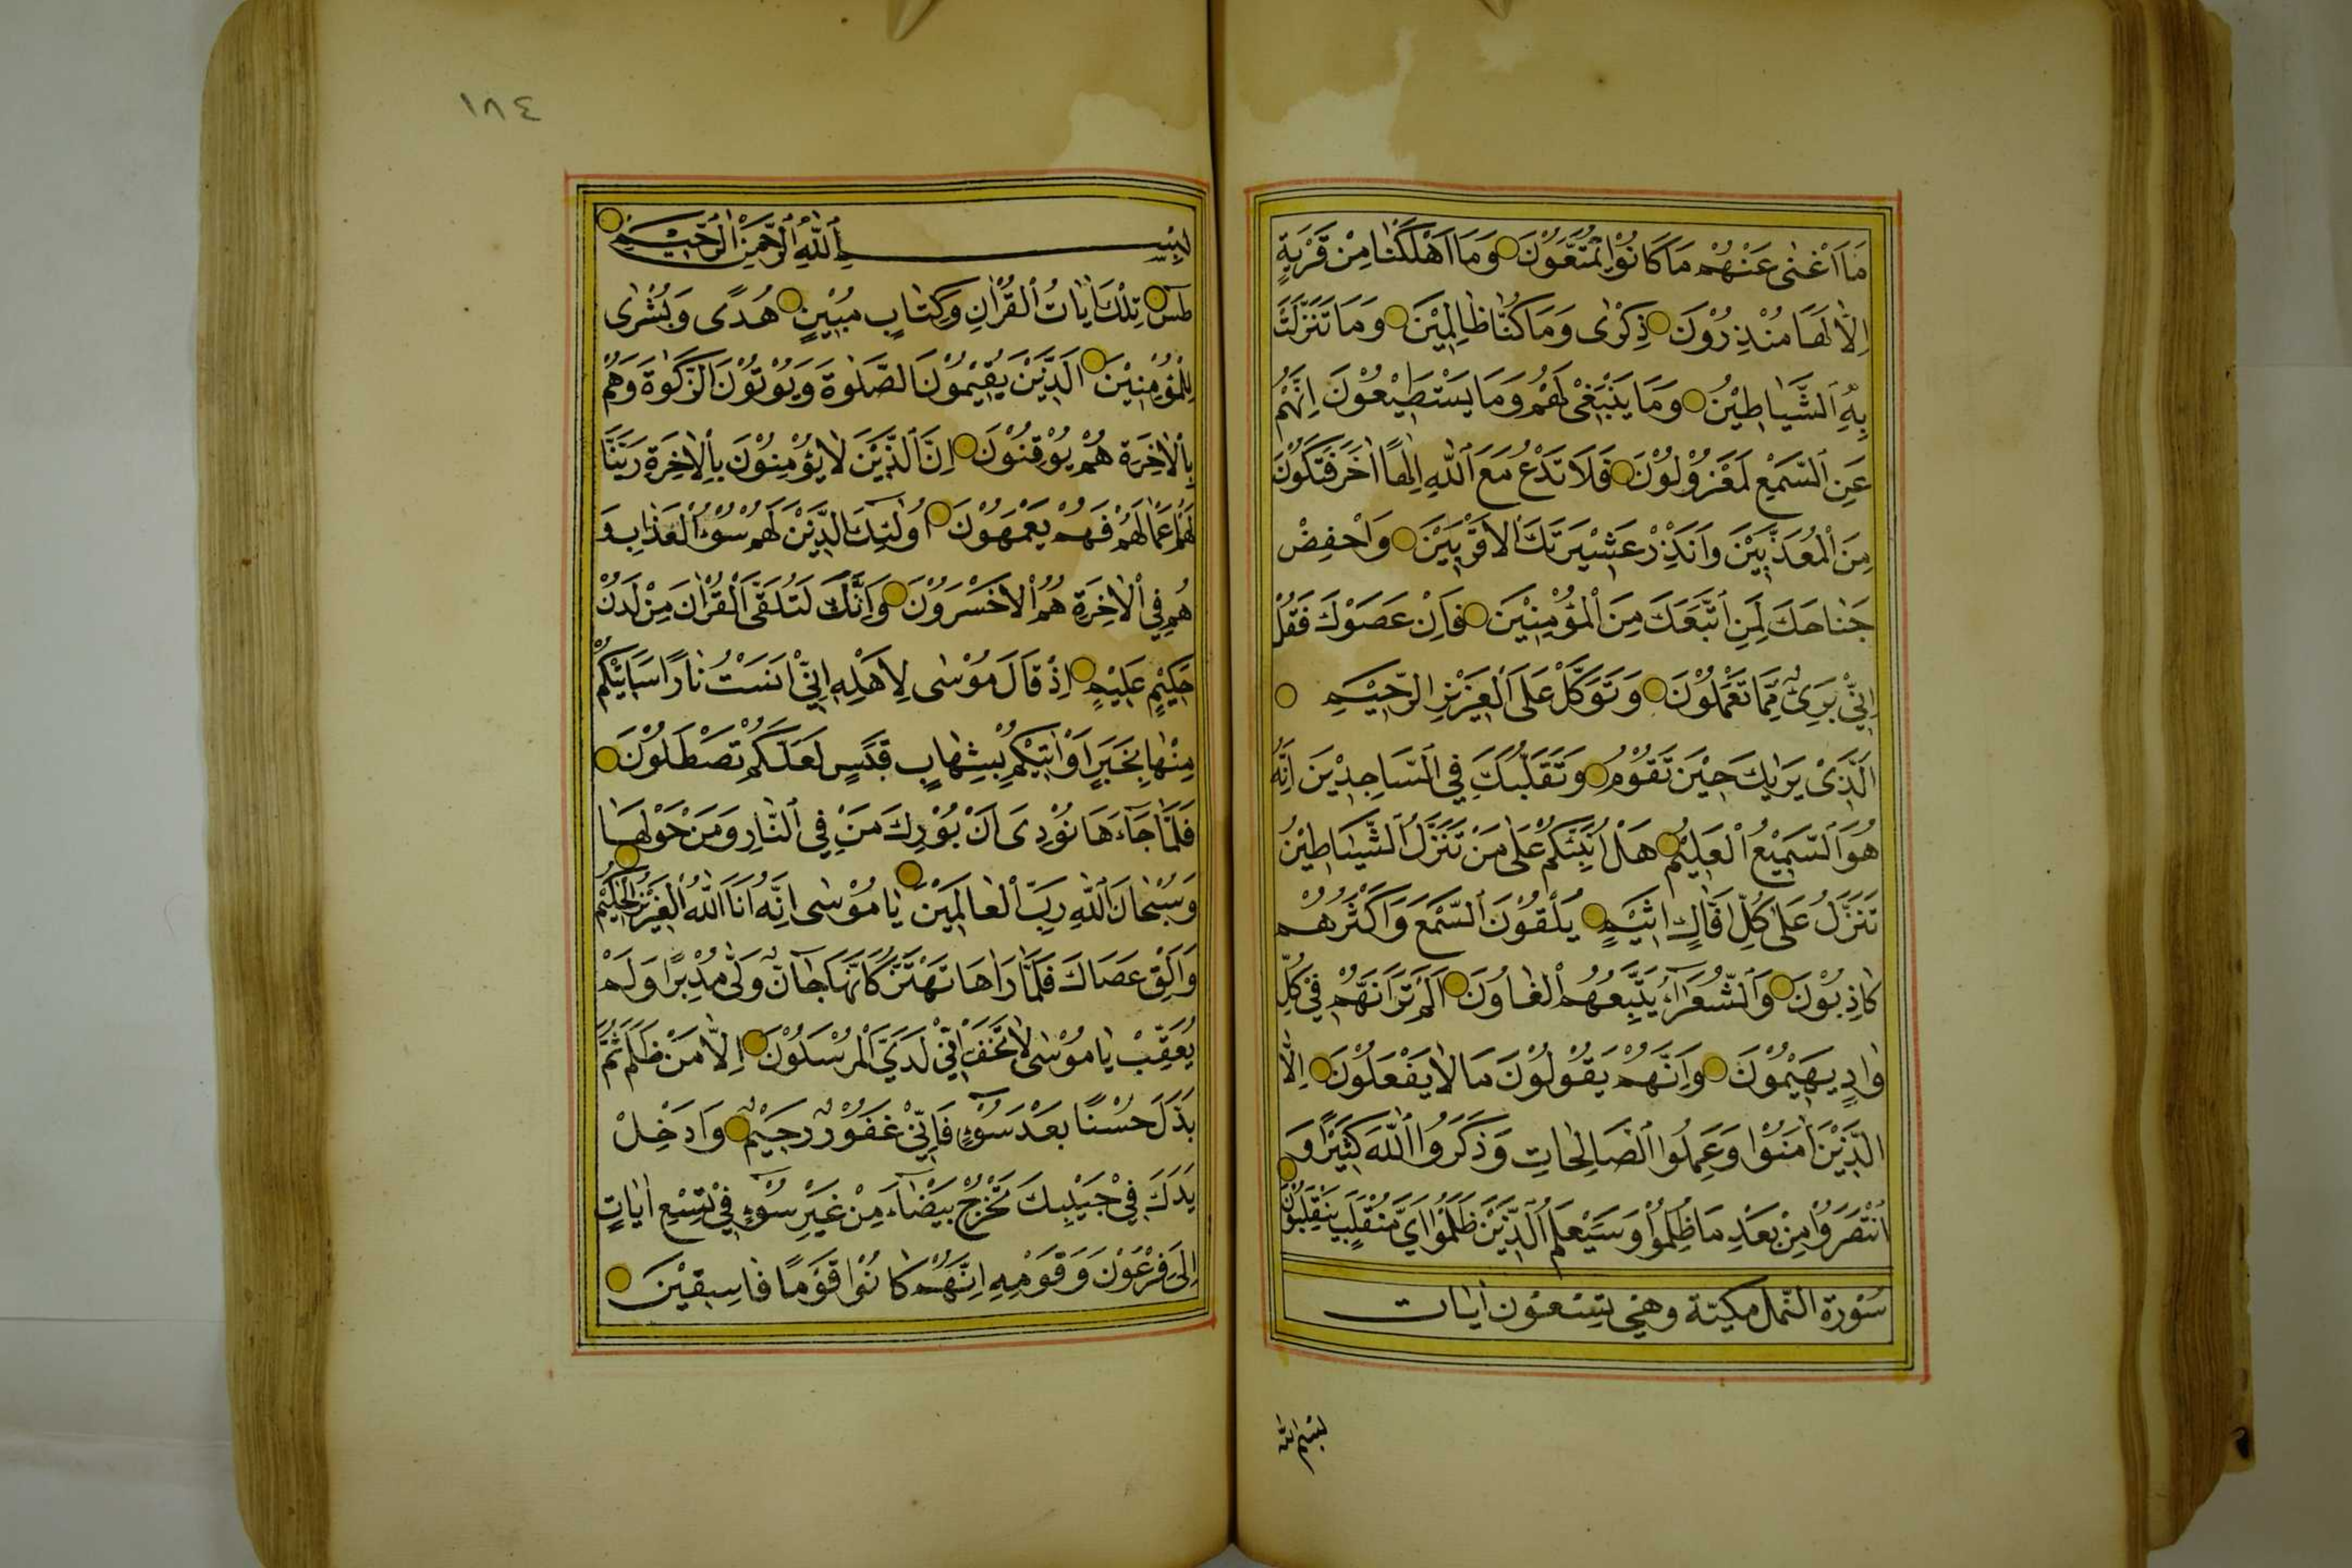 مَا اَغْنٰى عَنْهُمْ مَا كَانُوْا يُمَتَّعُوْنَ وَمَا اَهْلَكْنَا مِنْ قَرْيَةٍ
اِلَّا لَهَا مُنْذِرُوْنَ ذِكْرٰى وَمَا كُنَّا ظَالِمِيْنَ وَمَا تَنَزَّلَتْ
بِهِ الشَّيَاطِيْنُ وَمَا يَنْبَغِيْ لَهُمْ وَمَا يَسْتَطِيْعُوْنَ اِنَّهُمْ
عَنِ السَّمْعِ لَمَعْزُوْلُوْنَ فَلَا تَدْعُ مَعَ اللّٰهِ اِلٰهًا اٰخَرَ فَتَكُوْنَ
مِنَ الْمُعَذَّبِيْنَ وَاَنْذِرْ عَشِيْرَتَكَ الْاَقْرَبِيْنَ وَاخْفِضْ
جَنَاحَكَ لِمَنِ اتَّبَعَكَ مِنَ الْمُؤْمِنِيْنَ فَاِنْ عَصَوْكَ فَقُلْ
اِنِّيْ بَرِىْءٌ مِمَّا تَعْمَلُوْنَ وَتَوَكَّلْ عَلَى الْعَزِيْزِ الرَّحِيْمِ
الَّذِىْ يَرٰيكَ حِيْنَ تَقُوْمُ وَتَقَلُّبَكَ فِي السَّاجِدِيْنَ اِنَّهُ
هُوَ السَّمِيْعُ الْعَلِيْمُ هَلْ اُنَبِّئُكُمْ عَلٰى مَنْ تَنَزَّلُ الشَّيَاطِيْنُ
تَنَزَّلُ عَلٰى كُلِّ اَفَّاكٍ اَثِيْمٍ يُلْقُوْنَ السَّمْعَ وَاَكْثَرُهُمْ
كَاذِبُوْنَ وَالشُّعَرَاءُ يَتَّبِعُهُمُ الْغَاوُنَ اَلَمْ تَرَ اَنَّهُمْ فِيْ كُلِّ
وَادٍ يَهِيْمُوْنَ وَاَنَّهُمْ يَقُوْلُوْنَ مَا لَا يَفْعَلُوْنَ اِلَّا
الَّذِيْنَ اٰمَنُوْا وَعَمِلُوا الصَّالِحَاتِ وَذَكَرُوا اللّٰهَ كَثِيْرًا وَ
انْتَصَرُوْا مِنْ بَعْدِ مَا ظُلِمُوْا وَسَيَعْلَمُ الَّذِيْنَ ظَلَمُوْا اَيَّ مُنْقَلَبٍ يَنْقَلِبُوْنَ
سُوْرَة النَّمل مكيّة وهى تِسْعُوْن اٰيَات
بِسْمِ اللّٰه
١٨٤
بِسْمِ اللّٰهِ الرَّحْمٰنِ الرَّحِيْمِ
طٰسٓ تِلْكَ اٰيَاتُ الْقُرْاٰنِ وَكِتَابٍ مُبِيْنٍ هُدًى وَبُشْرٰى
لِلْمُؤْمِنِيْنَ الَّذِيْنَ يُقِيْمُوْنَ الصَّلٰوةَ وَيُؤْتُوْنَ الزَّكٰوةَ وَهُمْ
بِالْاٰخِرَةِ هُمْ يُوْقِنُوْنَ اِنَّ الَّذِيْنَ لَا يُؤْمِنُوْنَ بِالْاٰخِرَةِ زَيَّنَّا
لَهُمْ اَعْمَالَهُمْ فَهُمْ يَعْمَهُوْنَ اُولٰئِكَ الَّذِيْنَ لَهُمْ سُوْءُ الْعَذَابِ وَ
هُمْ فِي الْاٰخِرَةِ هُمُ الْاَخْسَرُوْنَ وَاِنَّكَ لَتُلَقَّى الْقُرْاٰنَ مِنْ لَدُنْ
حَكِيْمٍ عَلِيْمٍ اِذْ قَالَ مُوْسٰى لِاَهْلِهِ اِنِّيْ اٰنَسْتُ نَارًا سَاٰتِيْكُمْ
مِنْهَا بِخَبَرٍ اَوْ اٰتِيْكُمْ بِشِهَابٍ قَبَسٍ لَعَلَّكُمْ تَصْطَلُوْنَ
فَلَمَّا جَاءَهَا نُوْدِىَ اَنْ بُوْرِكَ مَنْ فِي النَّارِ وَمَنْ حَوْلَهَا
وَسُبْحَانَ اللّٰهِ رَبِّ الْعَالَمِيْنَ يَا مُوْسٰى اِنَّهُ اَنَا اللّٰهُ الْعَزِيْزُ الْحَكِيْمُ
وَاَلْقِ عَصَاكَ فَلَمَّا رَاٰهَا تَهْتَزُّ كَاَنَّهَا جَانٌّ وَلّٰى مُدْبِرًا وَلَمْ
يُعَقِّبْ يَا مُوْسٰى لَا تَخَفْ اِنِّيْ لَا يَخَافُ لَدَيَّ الْمُرْسَلُوْنَ اِلَّا مَنْ ظَلَمَ ثُمَّ
بَدَّلَ حُسْنًا بَعْدَ سُوْءٍ فَاِنِّيْ غَفُوْرٌ رَحِيْمٌ وَاَدْخِلْ
يَدَكَ فِيْ جَيْبِكَ تَخْرُجْ بَيْضَاءَ مِنْ غَيْرِ سُوْءٍ فِيْ تِسْعِ اٰيَاتٍ
اِلٰى فِرْعَوْنَ وَقَوْمِهِ اِنَّهُمْ كَانُوْا قَوْمًا فَاسِقِيْنَ